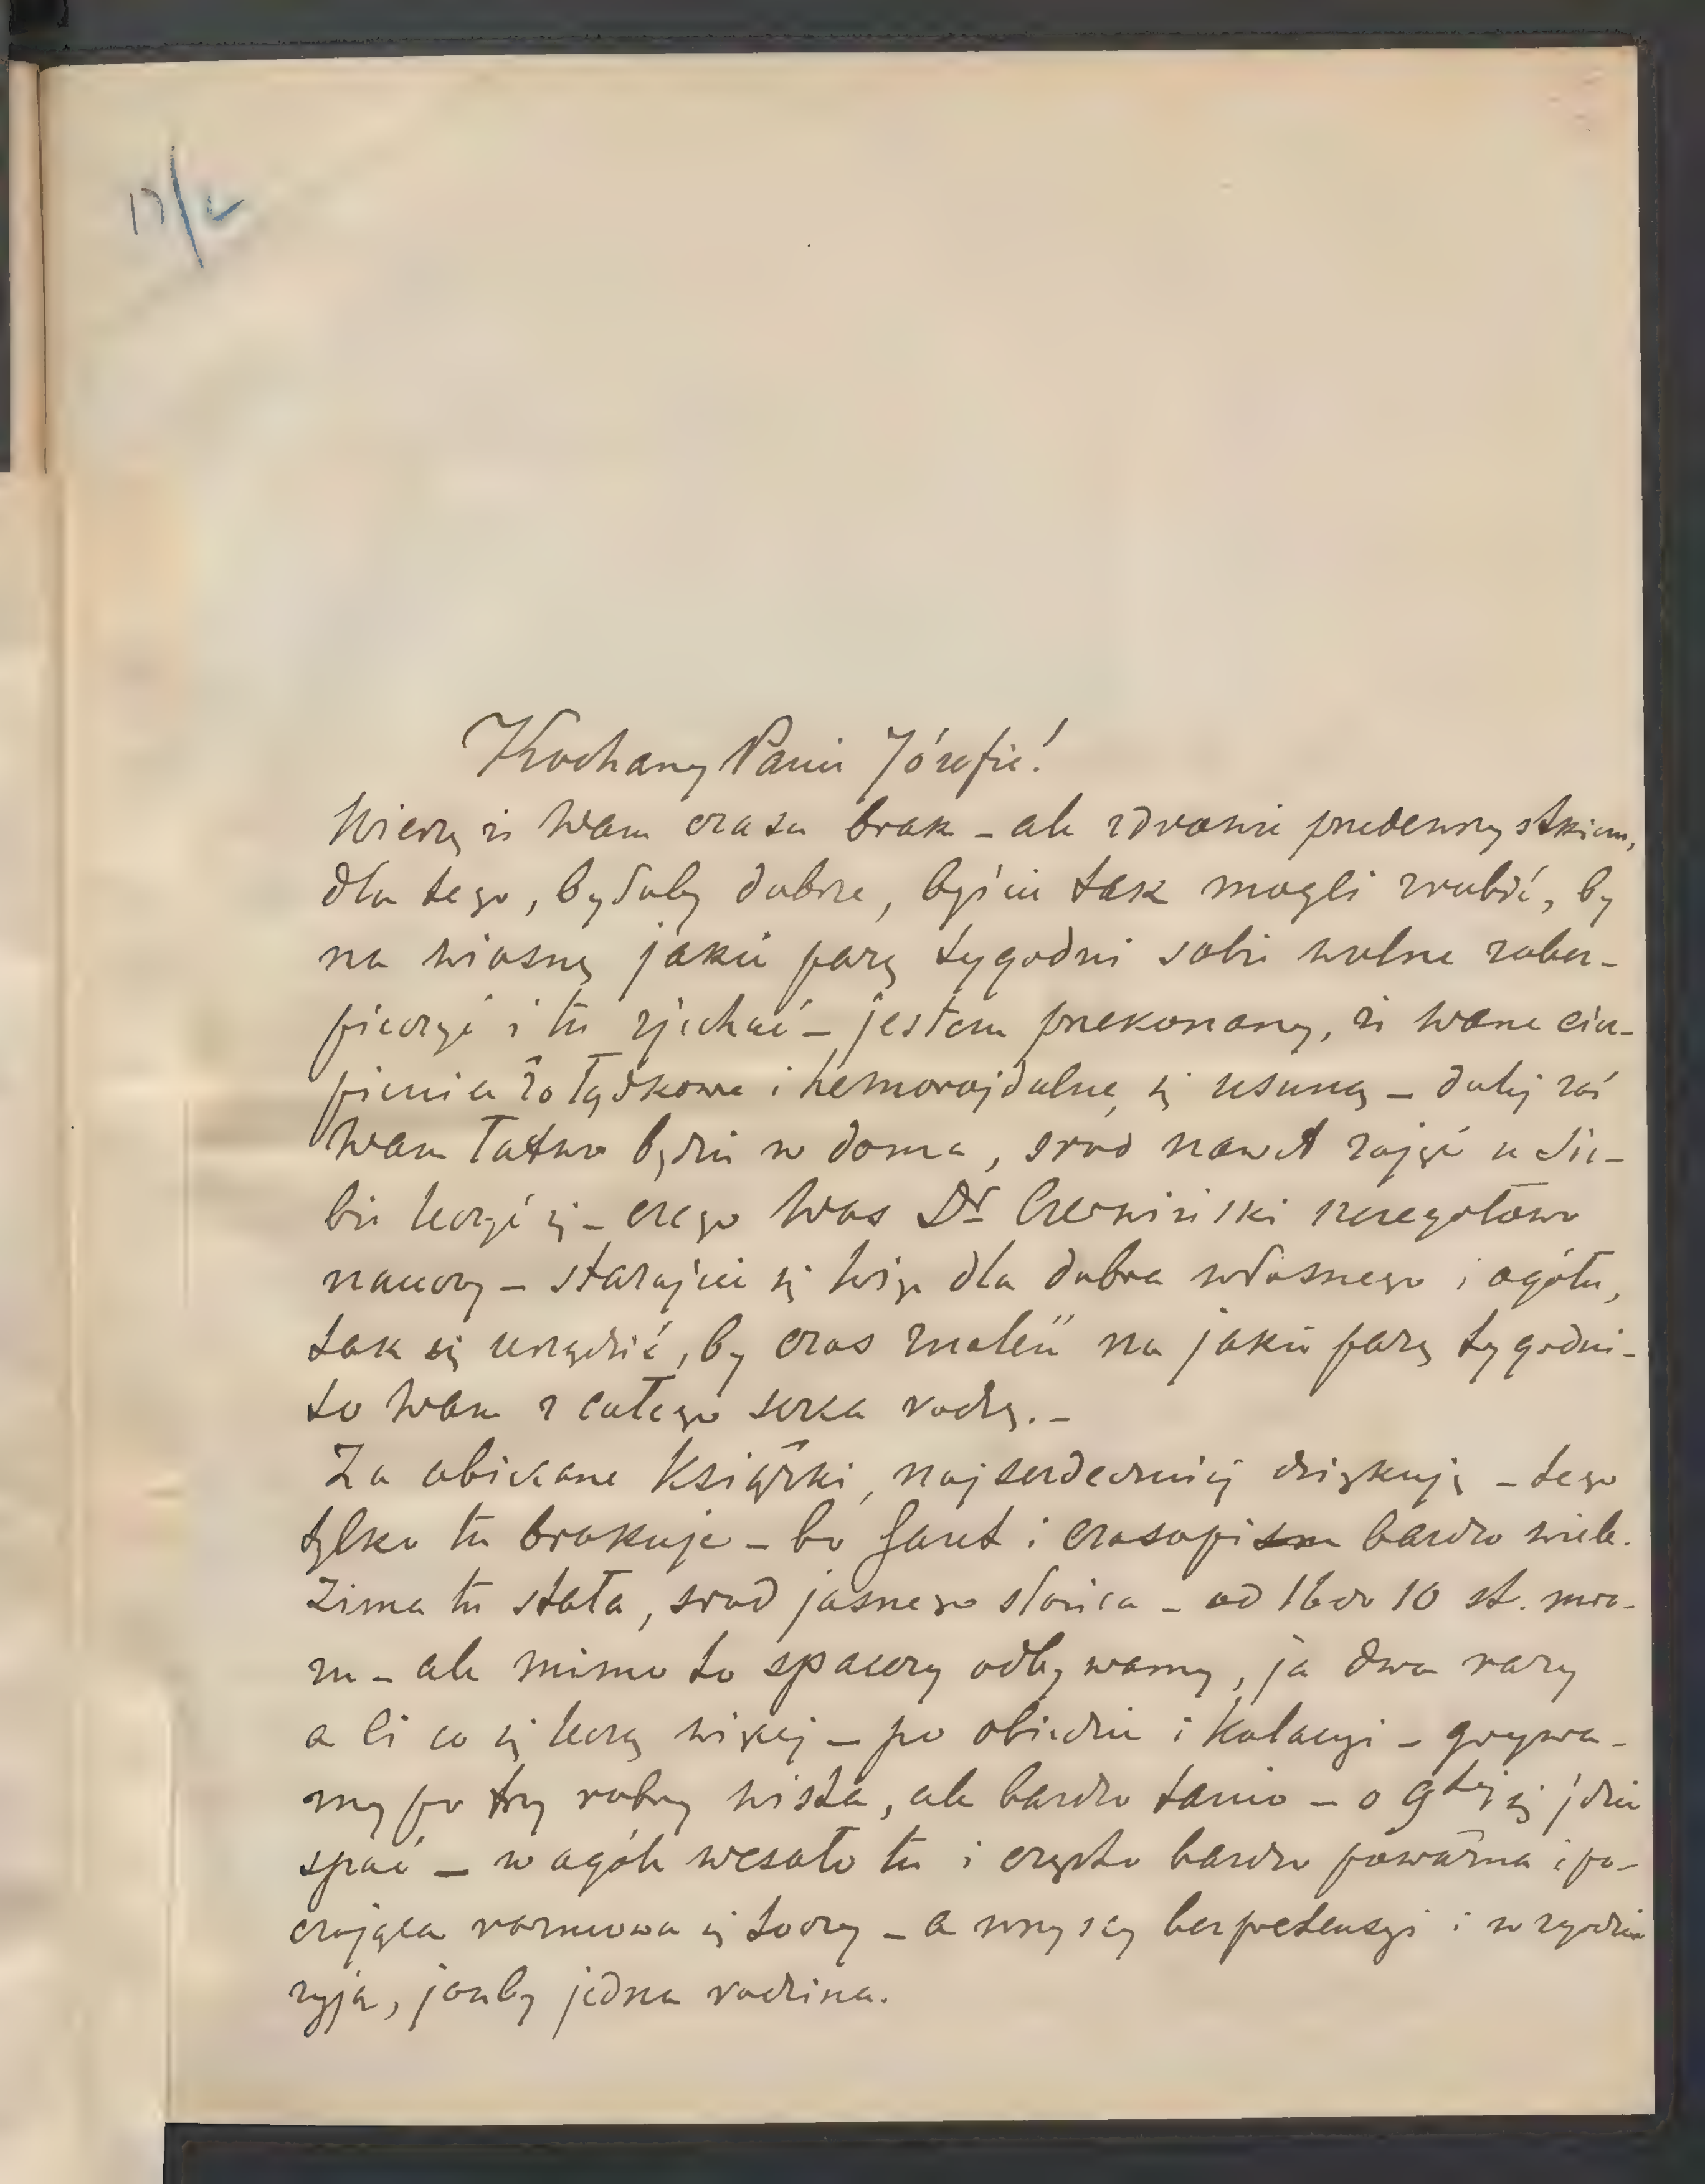 17/2
Kochany Panie Józefie!
Wierzę iż Wam czasu brak – ale zdrowie przedewszystkiem,
dla tego, byłoby dobrze, byście tak mogli zrobić, by
na wiosnę jakie parę tygodni sobie wolne zabez-
pieczyć i tu zjechać – jestem przekonany, iż wasze cier-
pienia żołądkowe i hemorojdalne, się usuną – dalej zaś
Wam łatwo będzie w domu, sród nawet zajęć u sie-
bie leczyć się – czego Was Dr Czerwiński szczegółowo
nauczy – starajcie się więc dla dobra własnego i ogółu,
tak się urządzić, by czas znaleść na jakie parę tygodni –
to Wam z całego serca radzę. –
Za obiecane Książki, najserdeczniej dziękuję – tego
tylko tu brakuje – bo gazet i czasopism bardzo wiele.
Zima tu stała, sród jasnego słońca – od 16 do 10 st. mro-
zu – ale mimo to spacery odbywamy, ja dwa razy
a ci co się leczą więcej – po obiedzie i Kolacyi – grywa-
my po trzy robry wista, ale bardzo tanio – o 9tej się idzie
spać – w ogóle wesoło tu i często bardzo poważna i po-
uczająca rozmowa się toczy – a wszyscy bez pretensyi i w zgodzie
żyją, jakby jedna rodzina.